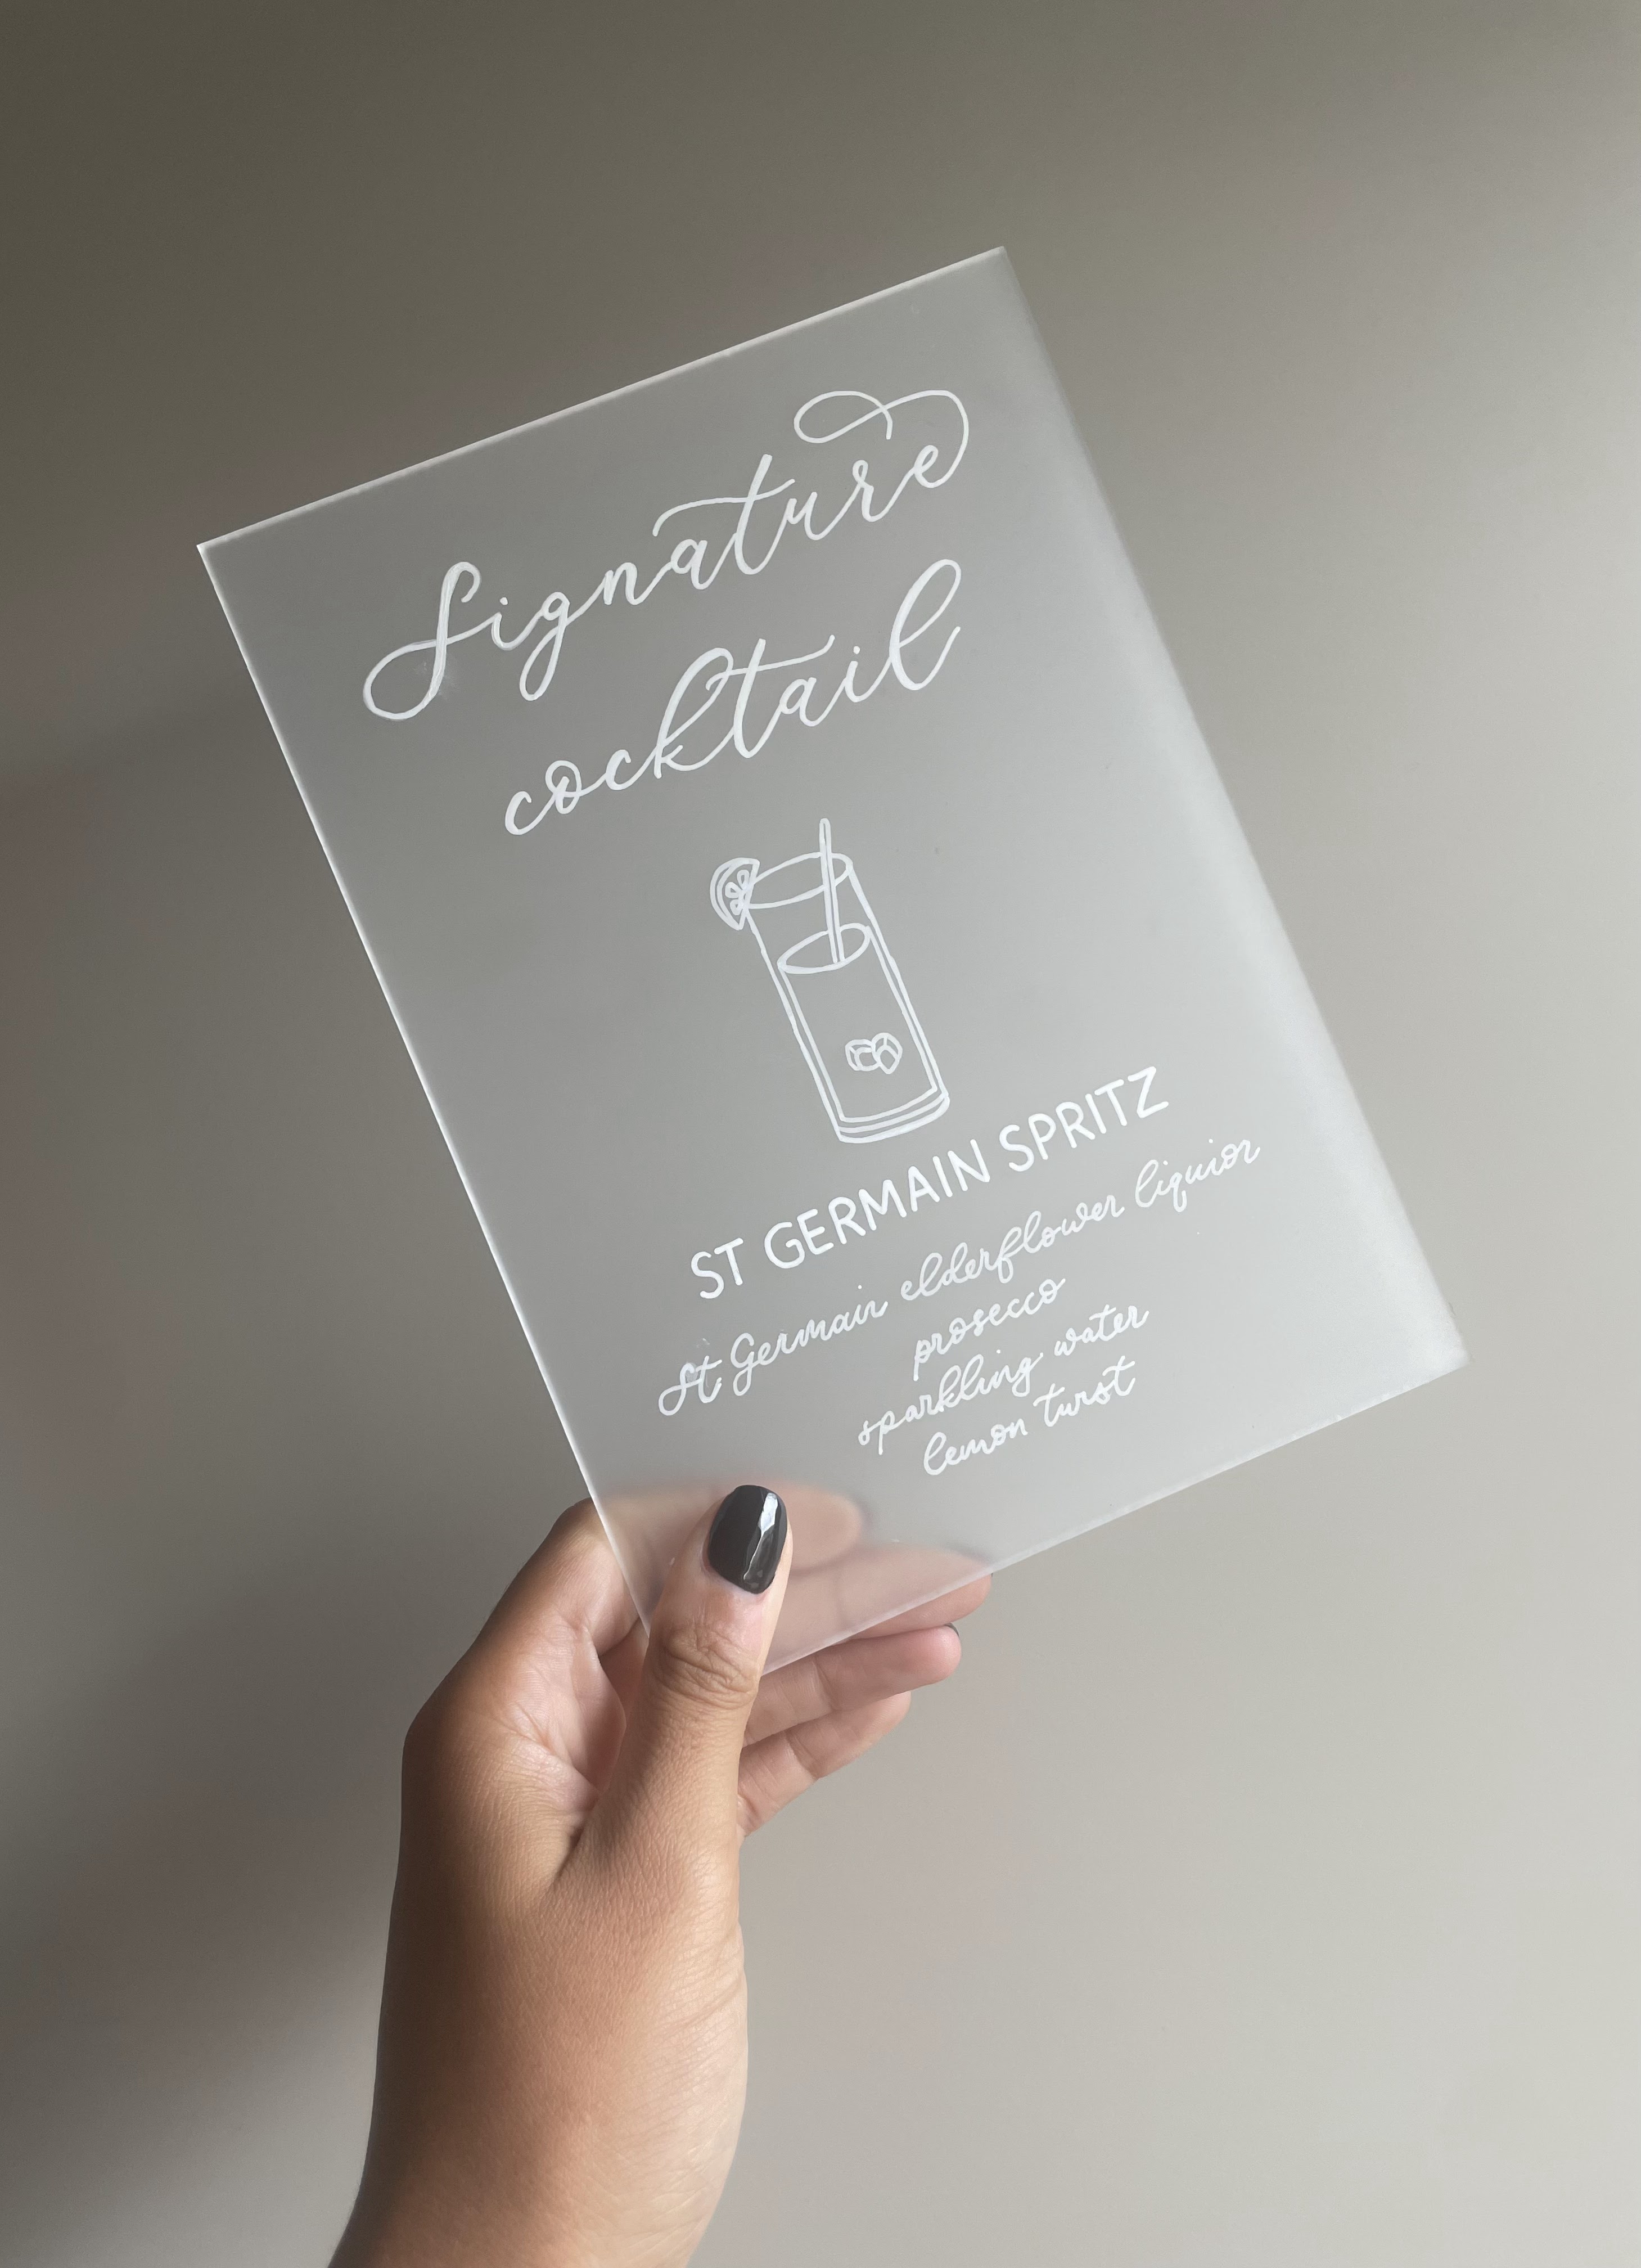 Signature
cocktail
ST GERMAIN SPRITZ
St Germain elderflower liquior
prosecco
sparkling water
lemon twist